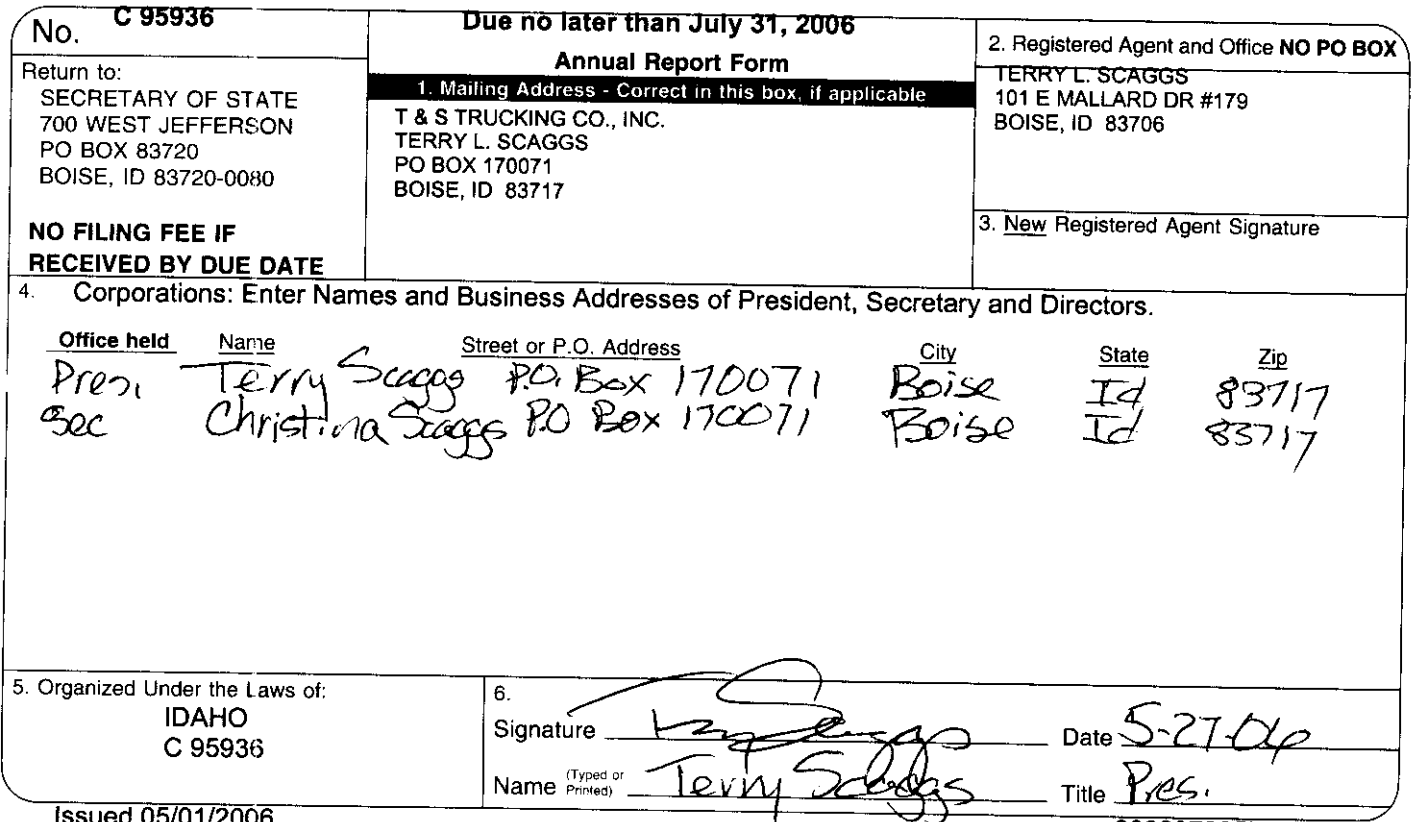 No. C 95936
Return to:
SECRETARY OF STATE
700 WEST JEFFERSON
PO BOX 83720
BOISE, ID 83720-0080
NO FILING FEE IF
RECEIVED BY DUE DATE
Due no later than July 31, 2006
Annual Report Form
1. Mailing Address - Correct in this box, if applicable
T & S TRUCKING CO., INC.
TERRY L. SCAGGS
PO BOX 170071
BOISE, ID 83717
2. Registered Agent and Office NO PO BOX
TERRY L. SCAGGS
101 E MALLARD DR #179
BOISE, ID 83706
3. New Registered Agent Signature
4. Corporations: Enter Names and Business Addresses of President, Secretary and Directors.
Office held Name Street or P.O. Address City State Zip
Pres. Terry Scaggs P.O. Box 170071 Boise Id 83717
Sec Christina Scaggs PO Box 170071 Boise Id 83717
5. Organized Under the Laws of:
IDAHO
C 95936
6.
Signature Terry Scaggs Date 5-27-06
Name (Typed or Printed) Terry Scaggs Title Pres.
Issued 05/01/2006